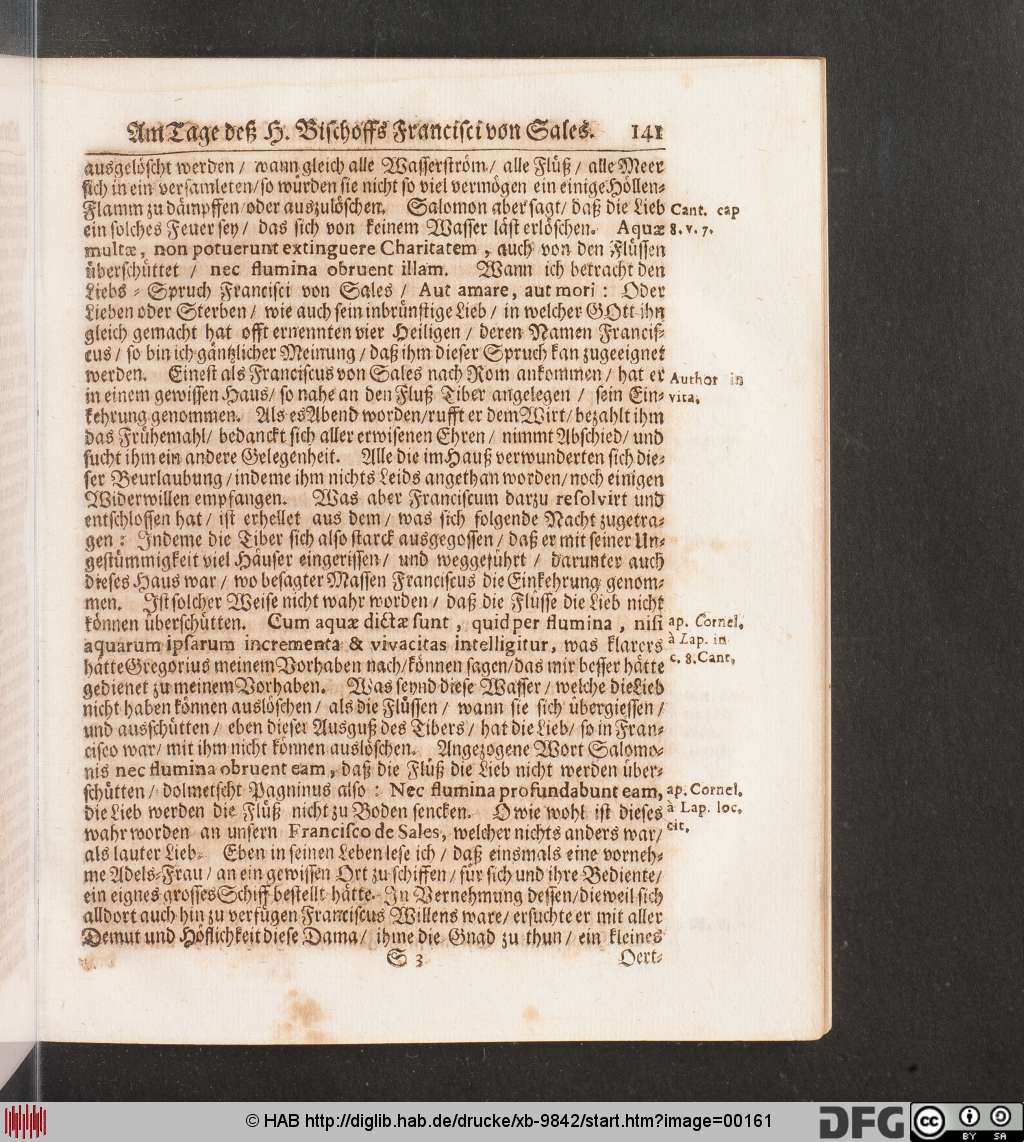 Am Tage deß H. Bischoffs Francisci von Sales. 141
ausgelöscht werden / wann gleich alle Wasserström / alle Flüß / alle Meer
sich in ein versamleten / so würden sie nicht so viel vermögen ein einige Höllen-
Flamm zu dämpffen / oder auszulöschen. Salomon aber sagt / daß die Lieb
Cant. cap
ein solches Feuer sey / das sich von keinem Wasser läst erlöschen. Aquæ
8. v. 7.
multæ, non potuerunt extinguere Charitatem, auch von den Flüssen
überschüttet / nec flumina obruent illam. Wann ich betracht den
Liebs-Spruch Francisci von Sales / Aut amare, aut mori: Oder
Lieben oder Sterben / wie auch sein inbrünstige Lieb / in welcher GOtt ihn
gleich gemacht hat offt ernennten vier Heiligen / deren Namen Francis-
cus / so bin ich gäntzlicher Meinung / daß ihm dieser Spruch kan zugeeignet
werden. Einest als Franciscus von Sales nach Rom ankommen / hat er
Author in
in einem gewissen Haus / so nahe an den Fluß Tiber angelegen / sein Ein-
vita.
kehrung genommen. Als es Abend worden / rufft er dem Wirt / bezahlt ihm
das Frühemahl / bedanckt sich aller erwisenen Ehren / nimmt Abschied / und
sucht ihm ein andere Gelegenheit. Alle die im Hauß verwunderten sich die-
ser Beurlaubung / indeme ihm nichts Leids angethan worden / noch einigen
Widerwillen empfangen. Was aber Franciscum darzu resolvirt und
entschlossen hat / ist erhellet aus dem / was sich folgende Nacht zugetra-
gen: Indeme die Tiber sich also starck ausgegossen / daß er mit seiner Un-
gestümmigkeit viel Häuser eingerissen / und weggeführt / darunter auch
dieses Haus war / wo besagter Massen Franciscus die Einkehrung genom-
men. Ist solcher Weise nicht wahr worden / daß die Flüsse die Lieb nicht
können überschütten. Cum aquæ dictæ sunt, quid per flumina, nisi
ap. Cornel.
aquarum ipsarum incrementa & vivacitas intelligitur, was klarers
à Lap. in
hätte Gregorius meinem Vorhaben nach / können sagen / das mir besser hätte
c. 8. Cant.
gedienet zu meinem Vorhaben. Was seynd diese Wasser / welche die Lieb
nicht haben können auslöschen / als die Flüssen / wann sie sich übergiessen /
und ausschütten / eben dieser Ausguß des Tibers / hat die Lieb / so in Fran-
cisco war / mit ihm nicht können auslöschen. Angezogene Wort Salomo-
nis nec flumina obruent eam, daß die Flüß die Lieb nicht werden über-
schütten / dolmetscht Pagninus also: Nec flumina profundabunt eam,
ap. Cornel.
die Lieb werden die Flüß nicht zu Boden sencken. O wie wohl ist dieses
à Lap. loc.
wahr worden an unsern Francisco de Sales, welcher nichts anders war /
cit.
als lauter Lieb. Eben in seinen Leben lese ich / daß einsmals eine vorneh-
me Adels-Frau / an ein gewissen Ort zu schiffen / für sich und ihre Bediente /
ein eignes grosses Schiff bestellt hätte. In Vernehmung dessen / dieweil sich
alldort auch hin zu verfügen Franciscus Willens ware / ersuchte er mit aller
Demut und Höflichkeit diese Dama / ihme die Gnad zu thun / ein kleines
S 3 Oert-
© HAB http://diglib.hab.de/drucke/xb-9842/start.htm?image=00161
DFG cc BY SA